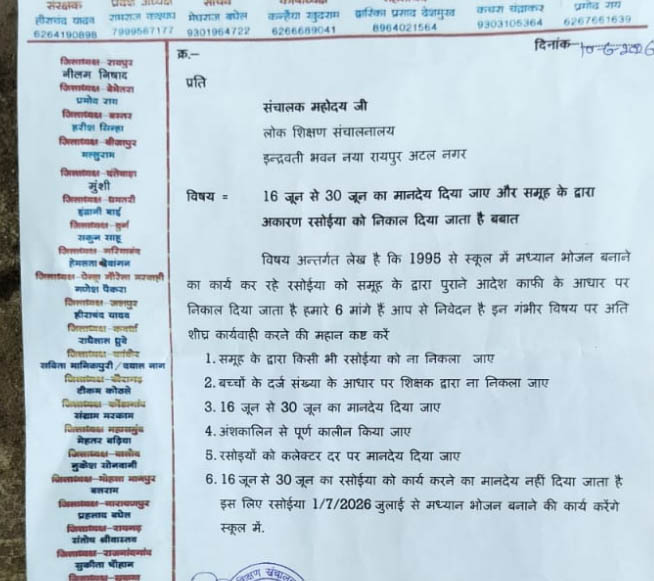 संरक्षक प्रदेश अध्यक्ष सचिव
हीराचंद यादव रामराज कश्यप मेघराज बघेल कन्हैया खुदराम द्वारिका प्रसाद देशमुख कचरा चंद्राकर प्रमोद राय
6264190898 7999567177 9301964722 6266689041 8964021564 9303105364 6267661639
दिनांक- 10-6-2026
क्र.–
प्रति
संचालक महोदय जी
लोक शिक्षण संचालनालय
इन्द्रवती भवन नया रायपुर अटल नगर
विषय = 16 जून से 30 जून का मानदेय दिया जाए और समूह के द्वारा
अकारण रसोईया को निकाल दिया जाता है बबात
विषय अन्तर्गत लेख है कि 1995 से स्कूल में मध्यान भोजन बनाने
का कार्य कर रहे रसोईया को समूह के द्वारा पुराने आदेश काफी के आधार पर
निकाल दिया जाता है हमारे 6 मांगे हैं आप से निवेदन है इन गंभीर विषय पर अति
शीघ्र कार्यवाही करने की महान कष्ट करें
1. समूह के द्वारा किसी भी रसोईया को ना निकला जाए
2. बच्चों के दर्ज संख्या के आधार पर शिक्षक द्वारा ना निकला जाए
3. 16 जून से 30 जून का मानदेय दिया जाए
4. अंशकालिन से पूर्ण कालीन किया जाए
5. रसोइयों को कलेक्टर दर पर मानदेय दिया जाए
6. 16 जून से 30 जून का रसोईया को कार्य करने का मानदेय नहीं दिया जाता है
इस लिए रसोईया 1/7/2026 जुलाई से मध्यान भोजन बनाने की कार्य करेंगे
स्कूल में.
जिलाध्यक्ष–रायपुर
नीलम निषाद
जिलाध्यक्ष–बेमेतरा
प्रमोद राय
जिलाध्यक्ष–बस्तर
हरीश सिन्हा
जिलाध्यक्ष–बीजापुर
मल्लुराम
जिलाध्यक्ष–दंतेवाड़ा
मुंशी
जिलाध्यक्ष–धमतरी
इंद्राणी बाई
जिलाध्यक्ष–दुर्ग
सकुन साहू
जिलाध्यक्ष–गरियाबंद
हेमलता देवांगन
जिलाध्यक्ष–पेन्ड्रा गौरेला मरवाही
गणेश पैकरा
जिलाध्यक्ष–जशपुर
हीराचंद यादव
जिलाध्यक्ष–कवर्धा
राधेलाल धुर्वे
जिलाध्यक्ष–कांकेर
सविता मानिकपुरी / दयाल नाग
जिलाध्यक्ष–खैरागढ़
टीकम कोठले
जिलाध्यक्ष–कोंडागांव
संग्राम मरकाम
जिलाध्यक्ष–महासमुंद
मेहतर बढ़िया
जिलाध्यक्ष–बालोद
मुकेश सोनवानी
जिलाध्यक्ष–मोहला मानपुर
बलराम
जिलाध्यक्ष–नारायणपुर
प्रहलाद बघेल
जिलाध्यक्ष–रायगढ़
संतोष श्रीवास्तव
जिलाध्यक्ष–राजनांदगांव
सुकीता चौहान
शिक्षण